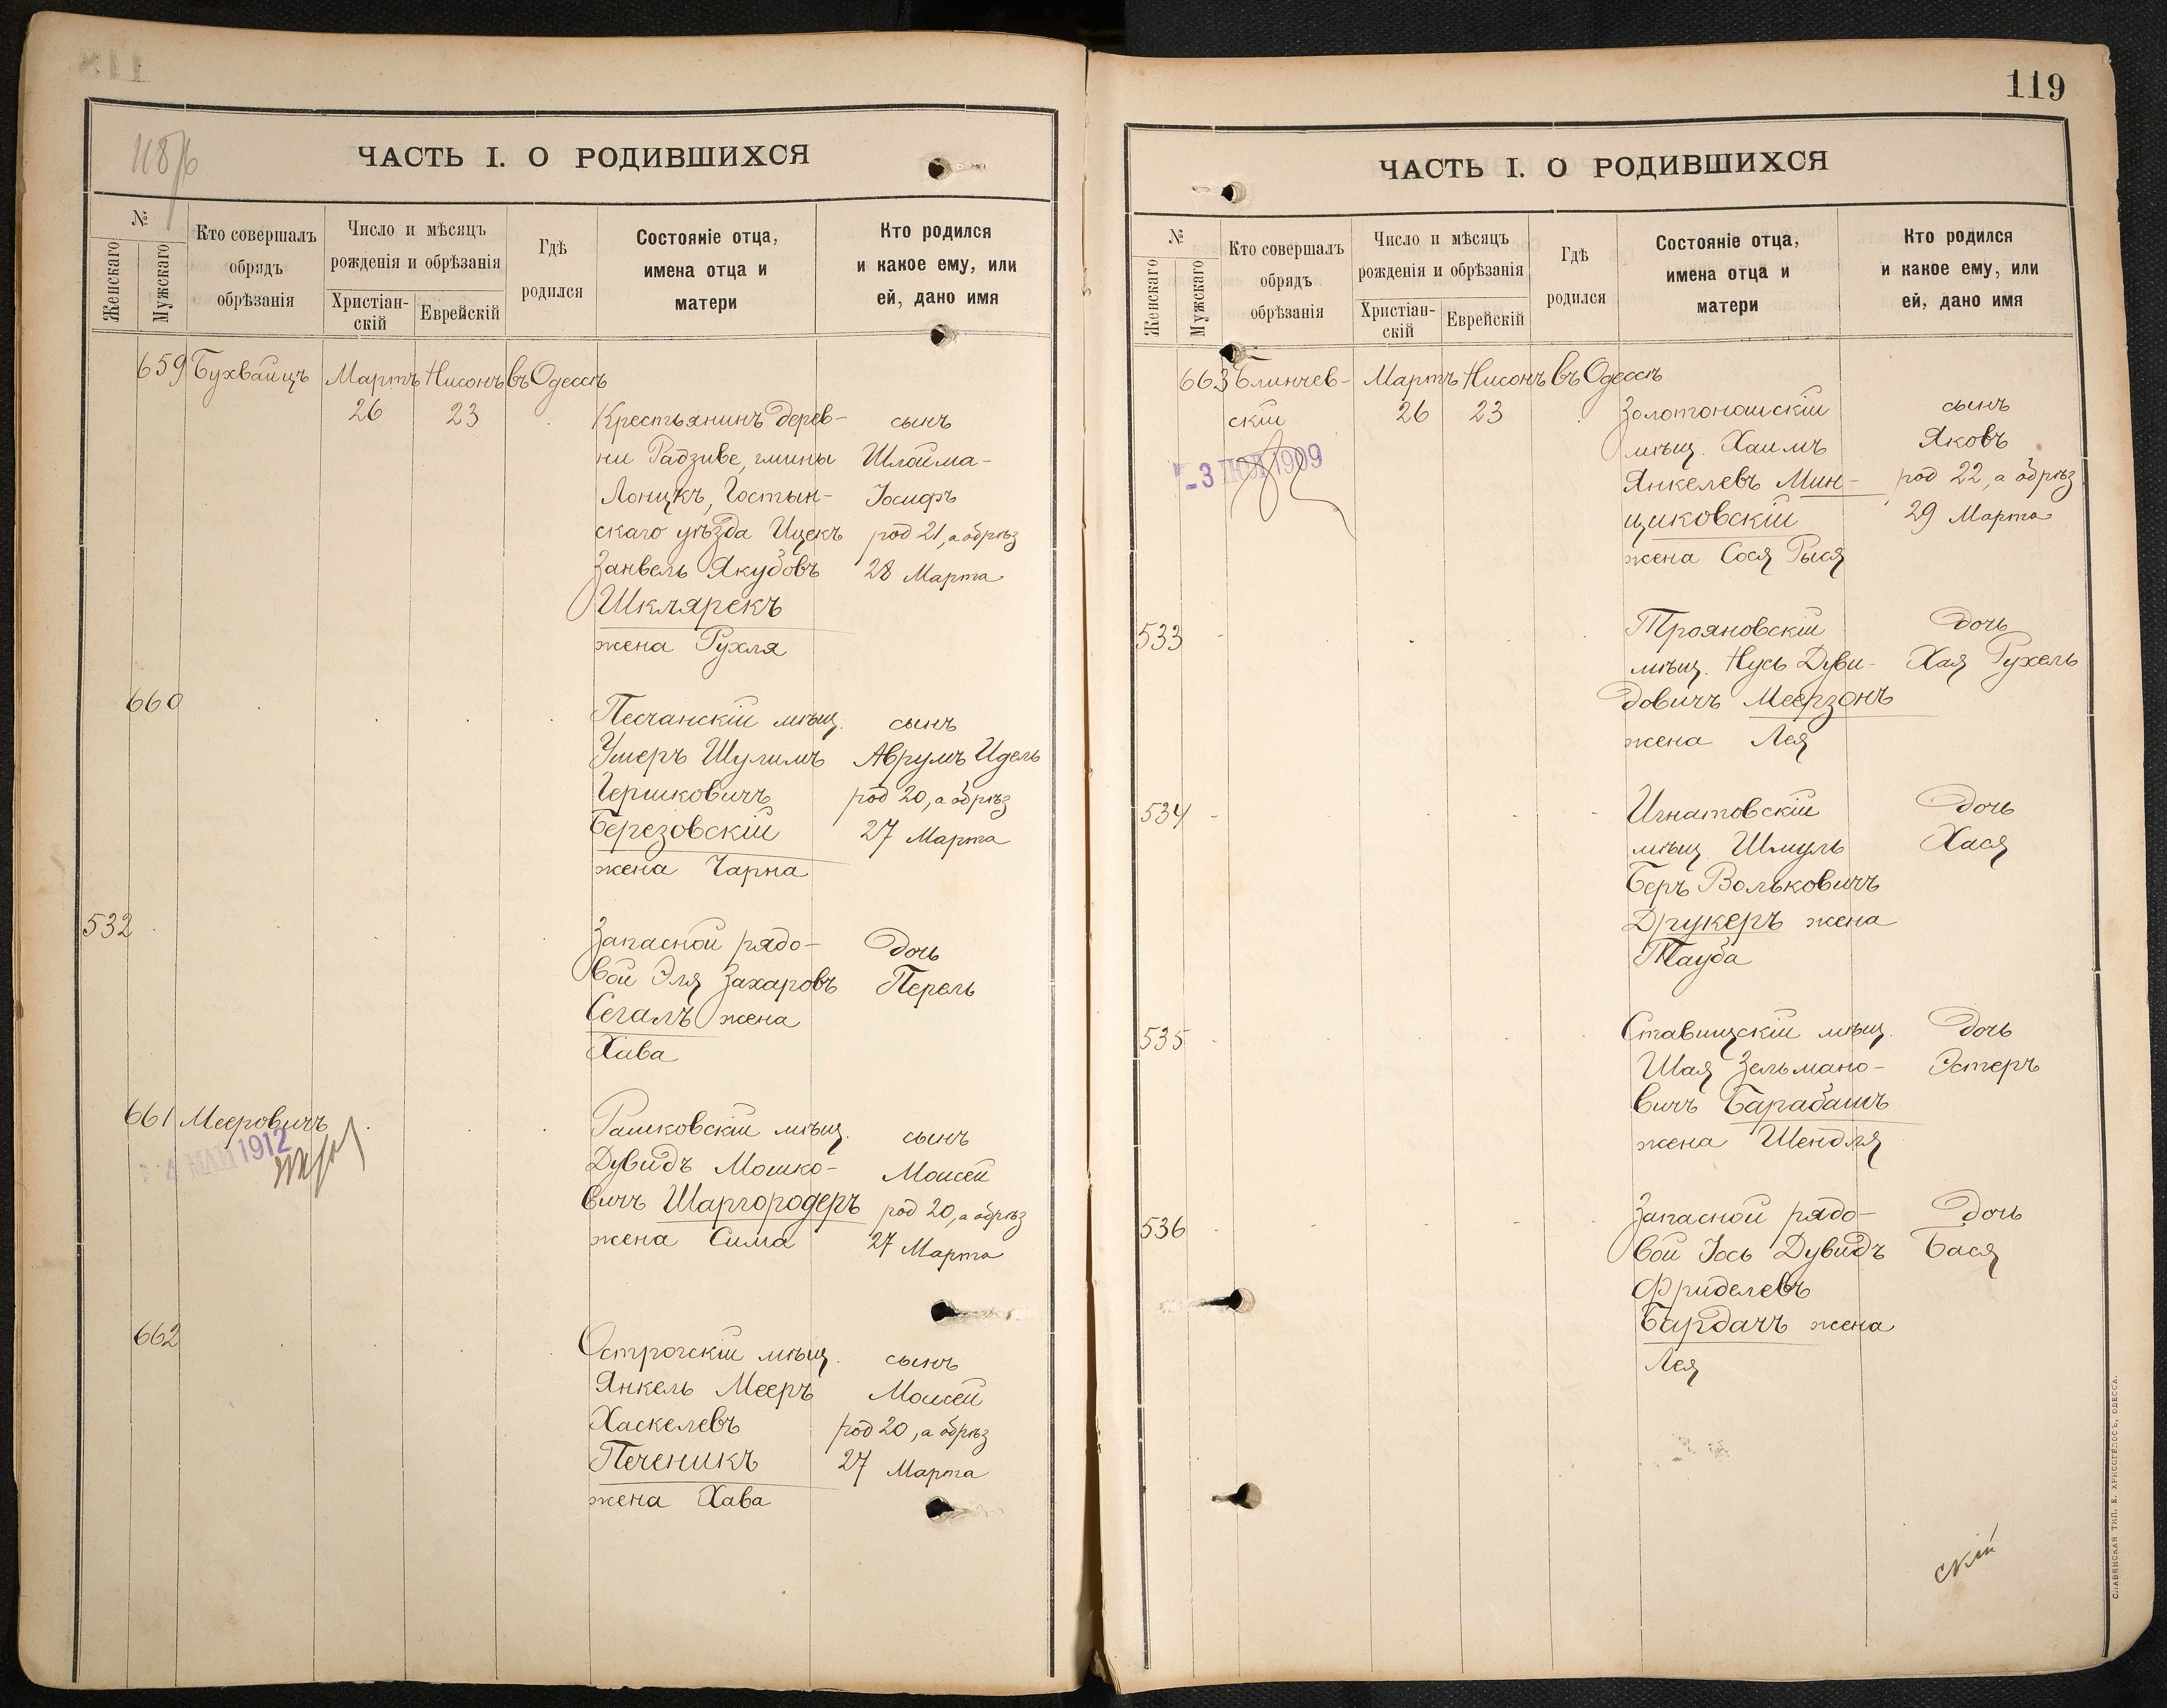 118/б
ЧАСТЬ I. О РОДИВШИХСЯ
№
Женскаго
Мужскаго
Кто совершалъ
обрядъ
обрѣзанія
Число и мѣсяцъ
рожденія и обрѣзанія
Христіан-
скій
Еврейскій
Гдѣ
родился
Состояніе отца,
имена отца и
матери
Кто родился
и какое ему, или
ей, дано имя
659 Бухвайцъ Мартъ Нисонъ въ Одессѣ
26 23 Крестьянинъ дерев- сынъ
ни Радзиве, гмины Шлойма-
Лонцкъ, Гостын- Іосифъ
скаго уѣзда Ицекъ род 21, а обрѣз
Занвель Якубовъ 28 Марта
Шклярекъ
жена Рухля
660 Песчанскій мѣщ. сынъ
Умеръ Шулимъ Аврумъ Идель
Гершковичъ род 20, а обрѣз
Березовскій 27 Марта
жена Чарна
532 Запасной рядо- дочь
вой Эля Захаровъ Перель
Сегалъ жена
Хава
661 Мееровичъ Рашковскій мѣщ. сынъ
4 МАЙ 1912
Дувидъ Мошко- Моисей
вичъ Шаргородеръ род 20, а обрѣз
жена Сима 27 Марта
662 Острогскій мѣщ. сынъ
Янкель Мееръ Моисей
Хаскелевъ род 20, а обрѣз
Печеникъ 27 Марта
жена Хава
119
ЧАСТЬ I. О РОДИВШИХСЯ
№
Женскаго
Мужскаго
Кто совершалъ
обрядъ
обрѣзанія
Число и мѣсяцъ
рожденія и обрѣзанія
Христіан-
скій
Еврейскій
Гдѣ
родился
Состояніе отца,
имена отца и
матери
Кто родился
и какое ему, или
ей, дано имя
663 Блинчев- Мартъ Нисонъ въ Одессѣ
скій 26 23 Золотоношскій сынъ
мѣщ. Хаимъ Яковъ
-3 1909
Янкелевъ Мин- род 22, а обрѣз
циковскій 29 Марта
жена Сося Рыся
533 Трояновскій дочь
мѣщ. Нусь Дуви- Хая Рухель
довичъ Меерзонъ
жена Лея
534 Игнатовскій дочь
мѣщ. Шмуль Хася
Беръ Вольковичъ
Друкеръ жена
Тауба
535 Ставищскій мѣщ. дочь
Шая Зельмано- Эстеръ
вичъ Барабашъ
жена Шендля
536 Запасной рядо- дочь
вой Іось Дувидъ Бася
Фриделевъ
Бардачъ жена
Лея
скій
СЛАВЯНСКАЯ ТИП. Е. ХРИСОГЕЛОСЪ, ОДЕССА.